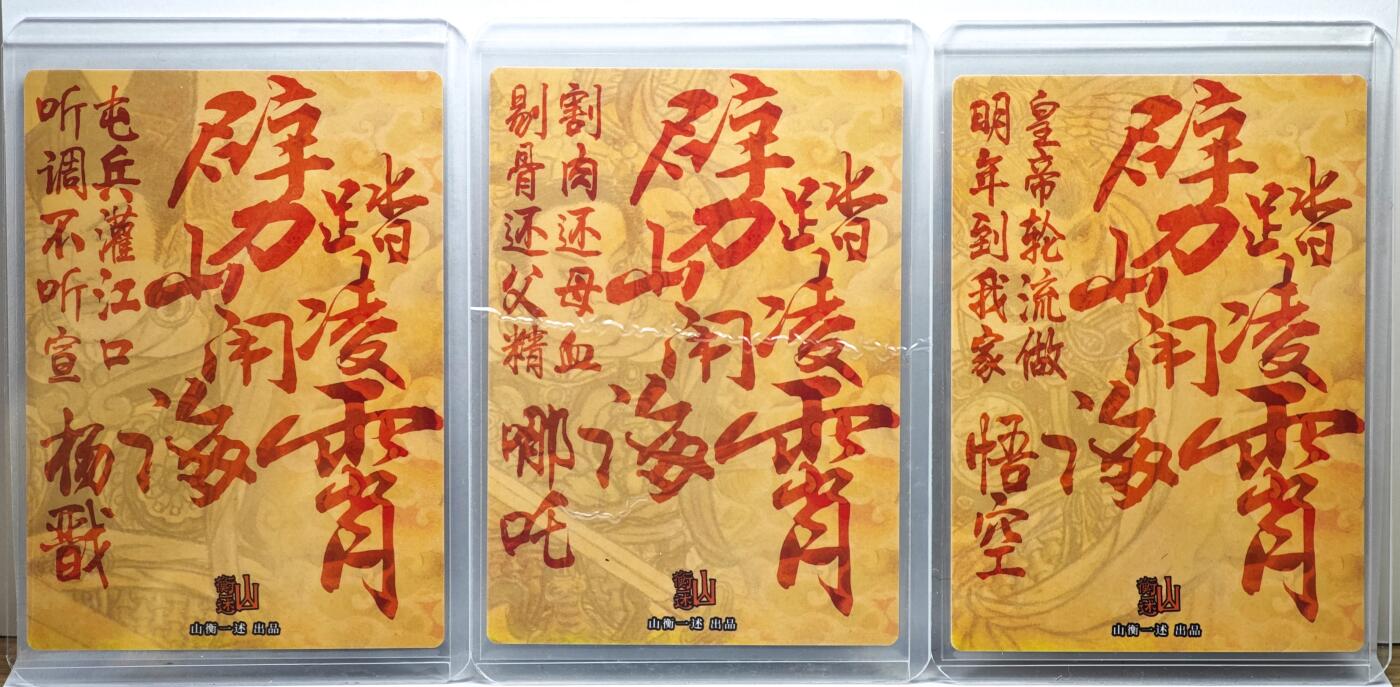 劈山闹海
踏凌霄
屯兵灌江口
听调不听宣
杨戬
山衡一述
山衡一述 出品
劈山闹海
踏凌霄
割肉还母血
剔骨还父精
哪吒
山衡一述
山衡一述 出品
劈山闹海
踏凌霄
皇帝轮流做
明年到我家
悟空
山衡一述
山衡一述 出品